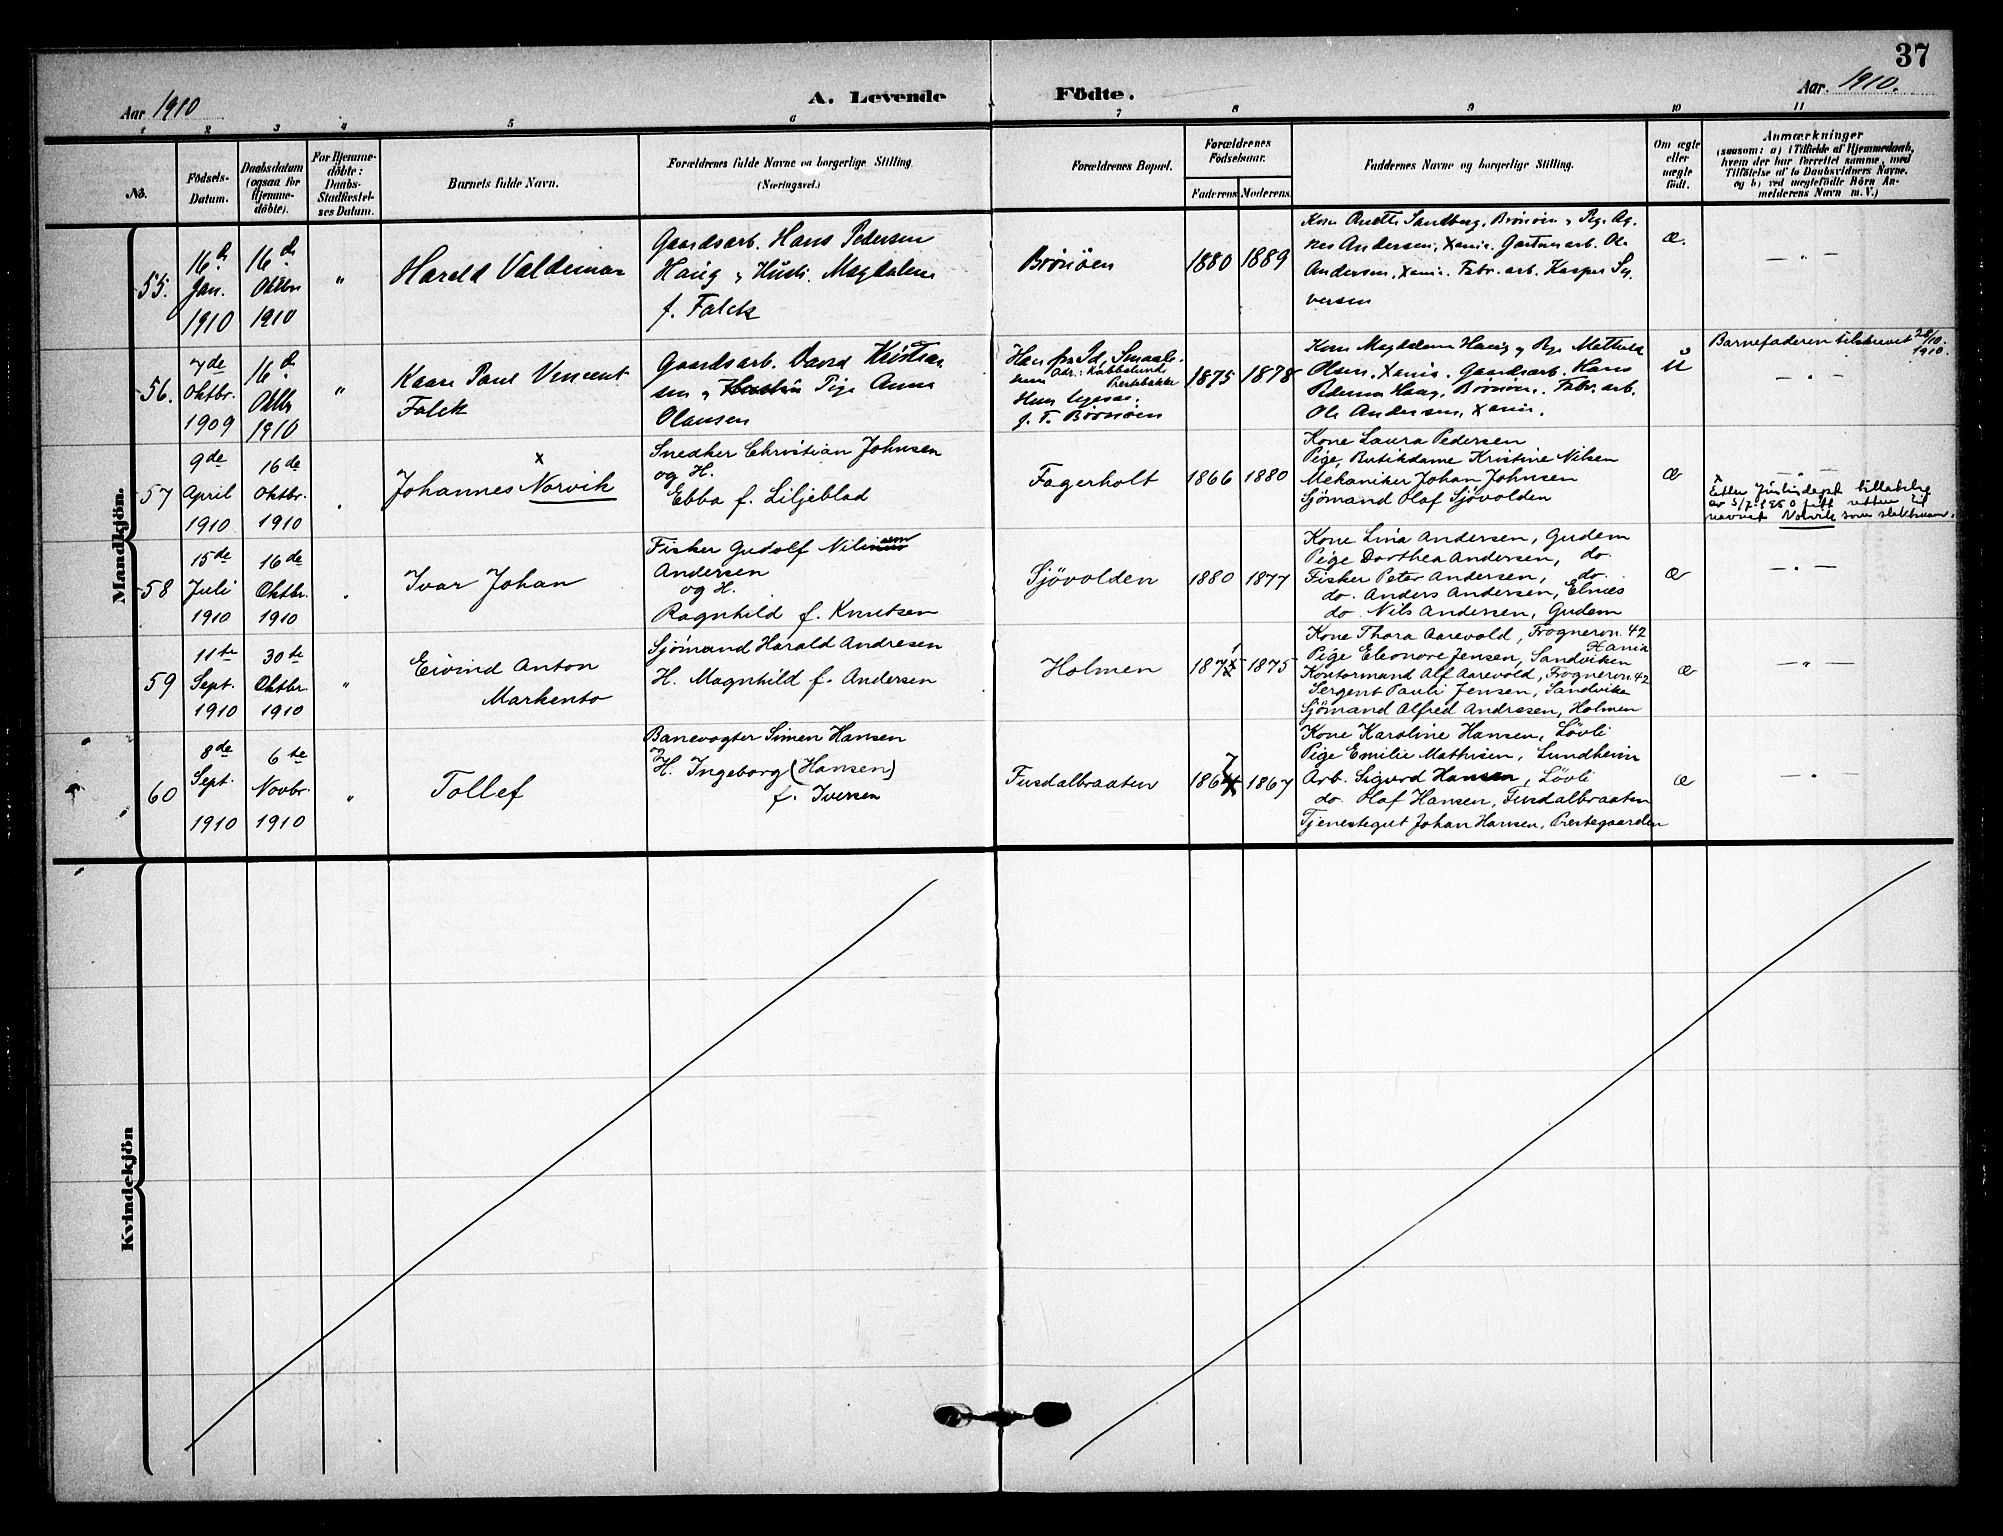 37
Aar 1910
A. Levende Födte.
Aar. 1910.
1 2 3 4 5 6 7 8 9 10 11
No.
Födsels-
Datum.
Daabsdatum
(ogsaa for
Hjemme-
döbte).
For Hjemme-
döbte:
Daabs-
Stadfæstel-
ses Datum.
Barnets fulde Navn.
Forældrenes fulde Navne og borgerlige Stilling.
(Næringsvei.)
Forældrenes Bopæl.
Forældrenes
Födselsaar.
Faderens Moderens.
Faddernes Navne og borgerlige Stilling.
Om ægte
eller
uægte
født.
Anmærkninger
(saasom: a) i Tilfælde af Hjemmedaab,
hvem der har forrettet samme, med
Tilføielse af to Daabsvidners Navne,
og b) ved uægtefødte Börn An-
melderens Navn m. V.)
Mandkjön.
55.
16de
Jan.
1910
16de
Oktbr
1910
"
Harald Valdemar
Gaardsarb. Hans Pedersen
Haug og Hustr. Magdalene
f. Falck
Brönöen
1880
1889
Kone Anette Sandberg, Brönöen og Pige Ag-
nes Andersen, Xania. Gartnerarb. Ole
Andersen, Xania. Fabr. arb. Kasper Sy-
versen
æ.
— " —
56.
7de
Oktbr.
1909
16de
Oktbr
1910
"
Kaare Paul Vincent
Falck
Gaardsarb. David Kristian-
sen og Hustru Pige Anna
Olausen
Han fra Id, Smaale-
nene Adr: Kabbelund
Berksbakke
Hun
p. T. Brönöen
1875
1878
Kone Magdalene Haug og Pige Mathilde
Olsen, Xania. Gaardsarb. Hans
Pedersen Haug, Brönöen. Fabr. arb.
Ole Andersen, Xania.
U
Barnefaderen tilskrevet 28/10.
1910.
— " —
57
9de
April
1910
16de
Oktbr.
1910
"
x
Johannes Norvik
Snedker Christian Johnsen
og H.
Ebba f. Liljeblad
Fagerholt
1866
1880
Kone Laura Pedersen
Pige, Butikdame Kristine Nilsen
Mekaniker Johan Johnsen
Sjömand Olaf Sjövolden
æ
— " —
x
Etter Justisdept. tillatelse
av 5/7-1950 gitt retten til
navnet Norvik som slektsnavn.
58
15de
Juli
1910
16de
Oktbr.
1910
"
Ivar Johan
Fisker Gudolf
Andersen
og H.
Ragnhild f. Knutsen
Sjövolden
1880
1877
Kone Lina Andersen, Gudem
Pige Dorthea Andersen, do.
Fisker Peter Andersen, do.
do. Anders Andersen, Elnæs
do. Nils Andersen, Gudem
æ
— " —
59
11te
Sept.
1910
30te
Oktbr.
1910
"
Eivind Anton
Markento
Sjömand Harald Andresen
H. Magnhild f. Andersen
Holmen
1871
1875
Kone Thora Aarevold, Frogneron. 42
Xania
Pige Eleonore Jensen, Sandviken
Kontormand Alf Aarevold, Frogneron. 42
Sergent Pauli Jensen, Sandvika
Sjömand Alfred Andresen, Holmen
æ
— " —
60
8de
Sept.
1910
6te
Novbr.
1910
"
Tollef
Banevogter Simen Hansen
og H. Ingeborg (Hansen)
f. Iversen
Fusdalbraaten
1867
1867
Kone Karoline Hansen, Lövli
Pige Emilie Mathisen, Lundheim
Arb. Sigurd Hansen, Lövli
do. Olaf Hansen, Fusdalbraaten
Tjenestegut Johan Hansen, Prestegaarden
æ
— " —
Kvindekjön